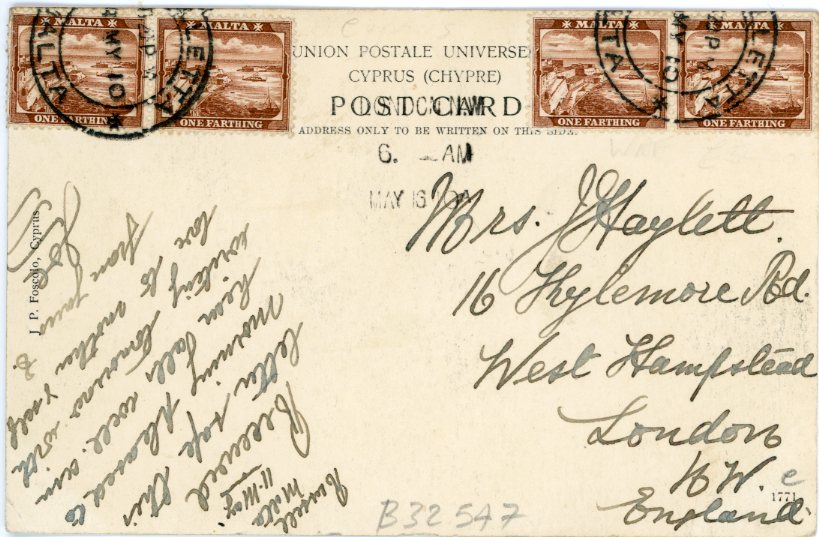 MALTA
ONE FARTHING
MALTA
ONE FARTHING
MALTA
ONE FARTHING
MALTA
ONE FARTHING
VALLETTA
MALTA
MY 10
VALLETTA
MY 10
UNION POSTALE UNIVERSE
CYPRUS (CHYPRE)
POST CARD
ADDRESS ONLY TO BE WRITTEN ON THIS SIDE.
LONDON N.W.
6. AM
MAY 16 10
Mrs. J Haylett.
16 Kylemore Rd.
West Hampstead
London
N.W.
England.
Malta
11. May
Received
letter safe this
morning pleased to
hear all well am
writing tomorrow with
love to mother & self
from yours
Joe
J. P. Foscolo, Cyprus
1771
B32547
e